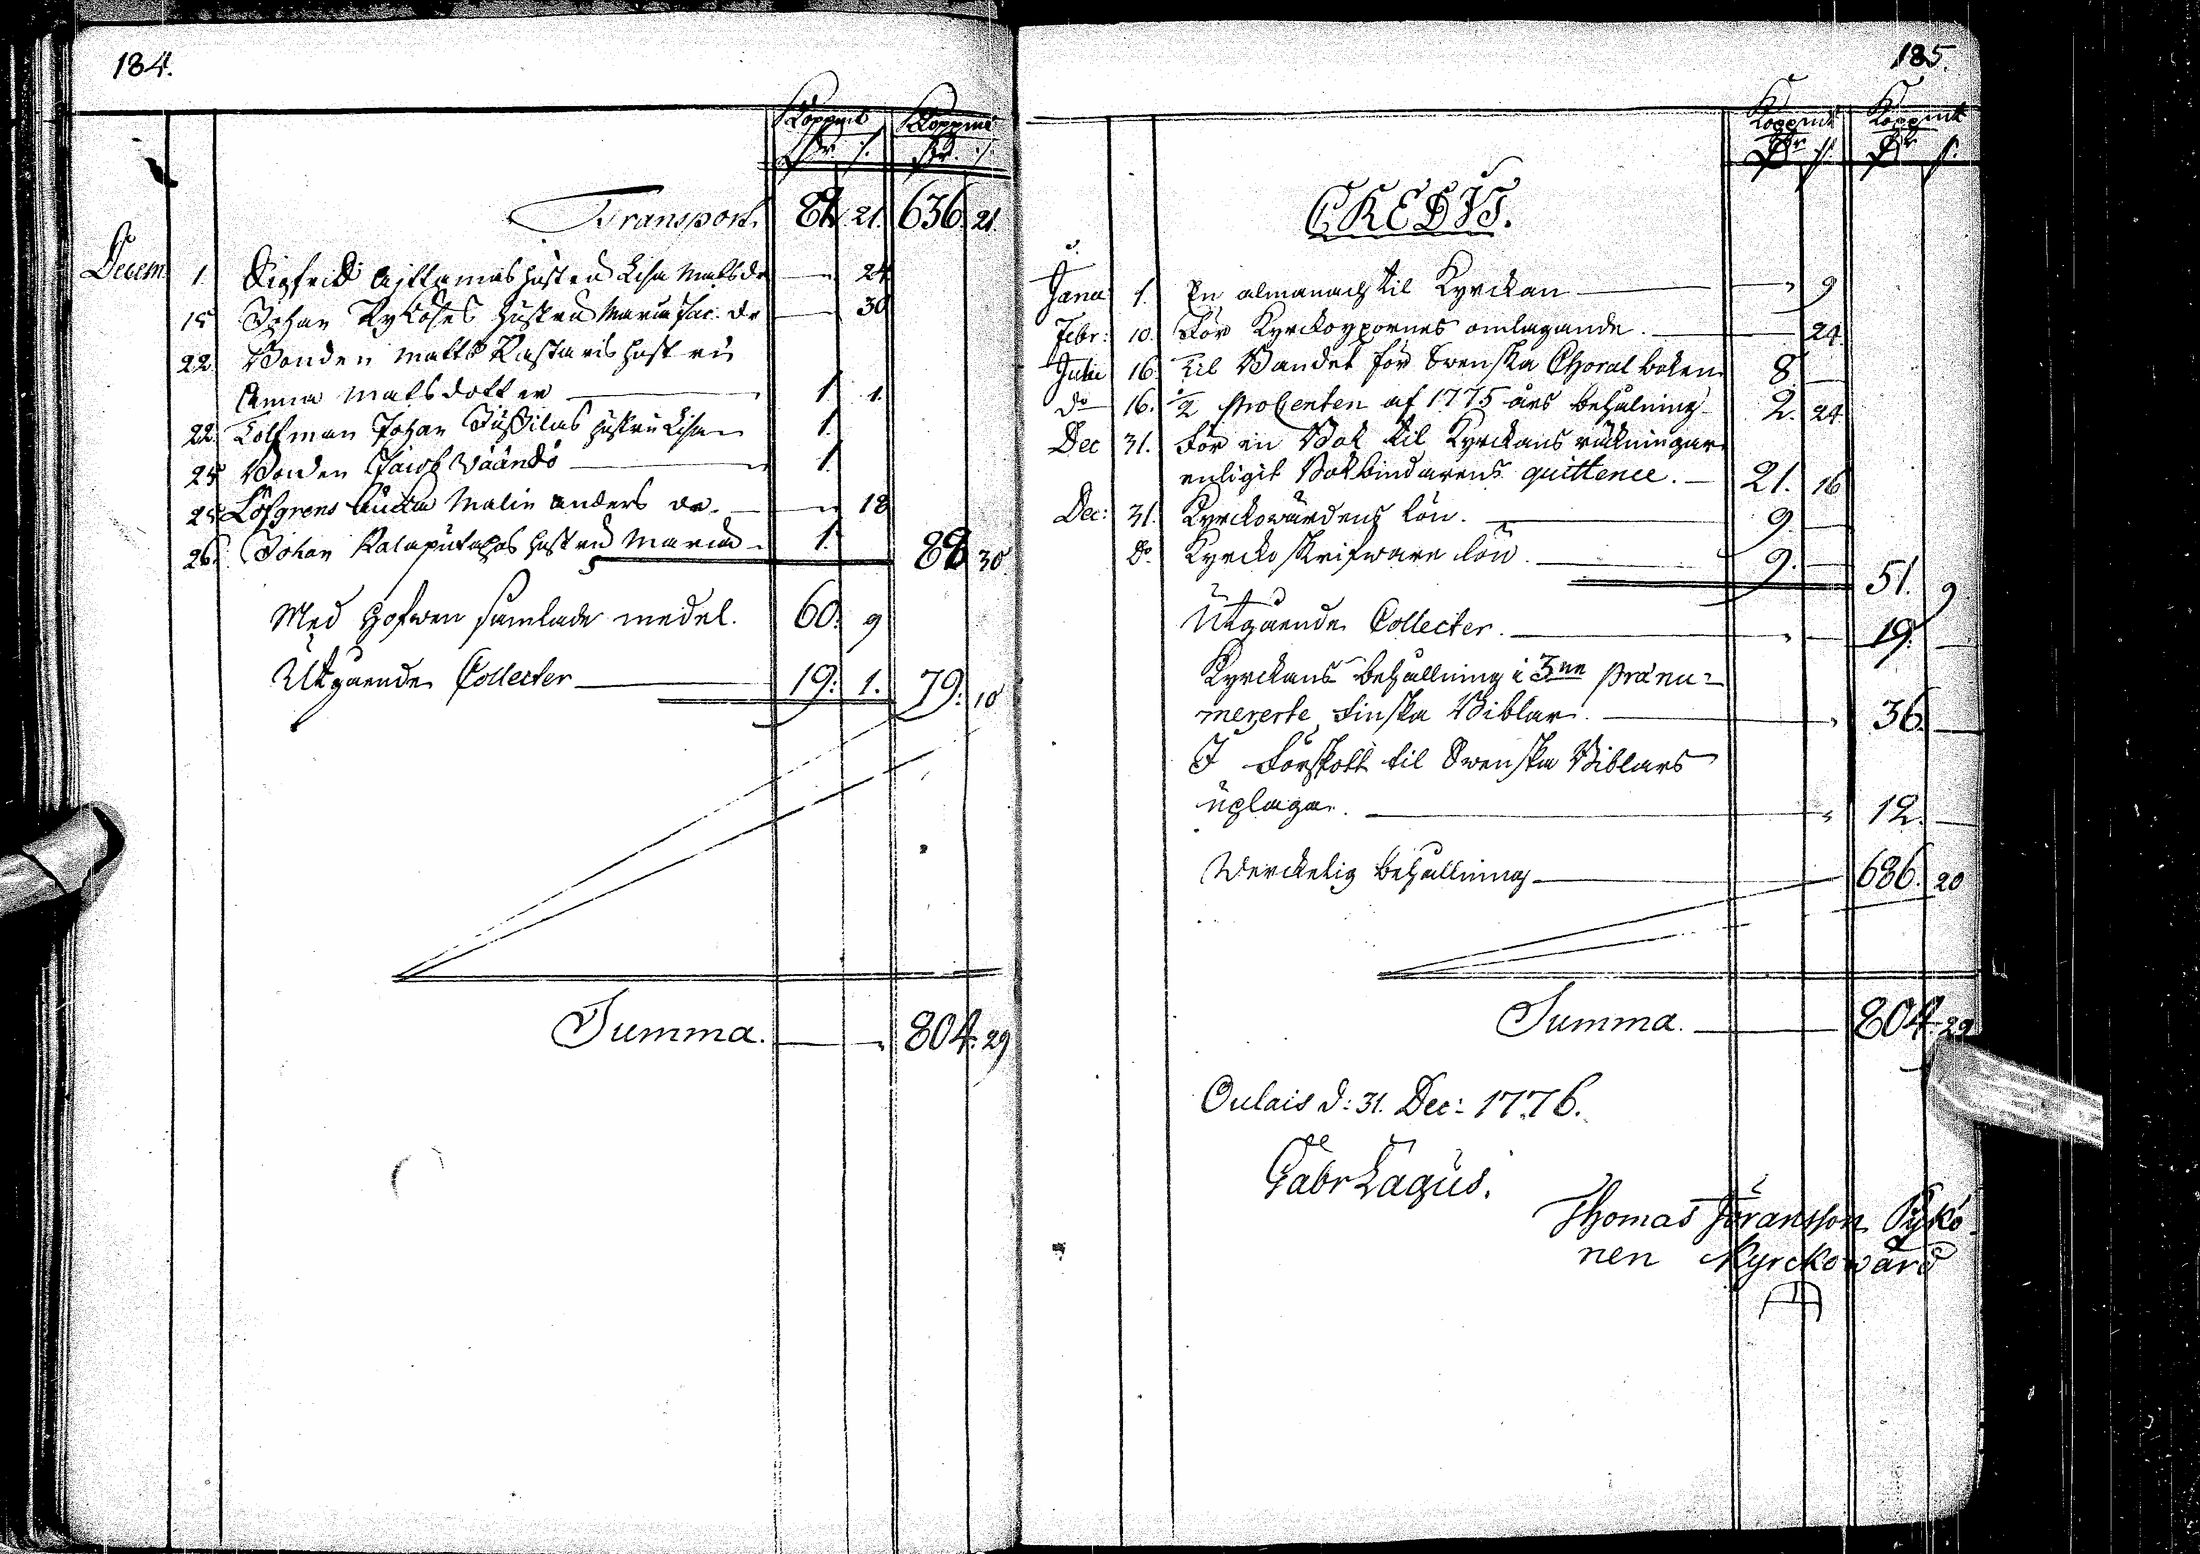 184.
Kopp:mt Kopp:mt
Dr / Dr /
Transport. 81. 21. 636. 21.
Decem 1. Sigfrid hustru Lisa Matsdr — „ 24
15 Johan hustru Maria Jac. dr — 30
22 Bonden Matts Rastaris hustru
Anna Matsdotter — 1. 1.
22. Johan Jussilas hustru Lisa 1.
25 Bonden Jacob Väändö — 1.
25 Löfgrens Malin Anders dr. — „ 18
26. Johan hustru Maria 1. 88 30
Med Hofwen samlade medel. 60. 9
Utgående Collecter — 19. 1. 79. 10
Summa. — „ 804. 29
185.
Kopp:mt Kopp:mt
Dr / Dr /
CREDIT.
Janu 1. En almanach til Kyrckan — „ 9
Febr: 10. För omlagande. — 24
Julii 16. Til Bandet för Swenska Choral boken 8. —
do 16. 2 proCenten af 1775 års behålning 2. 24
Dec 31. För en Bok til Kyrckans räkningar
enligit Bokbindarens quittence. — 21. 16
Dec: 31. Kyrckowärdens lön. — 9. —
do. Kyrcko skrifware lön. — 9. — 51. 9
Utgående Collecter. — „ — 19. —
Kyrckans behållning i 3ne prænu=
mererte Finska Biblar. — „ 36. —
I Förskott til Swenska Biblars
uplaga. — „ 12. —
Werckelig behållning — 686. 20
Summa. — 804. 29
Oulais d: 31. Dec: 1776.
Gabr Lagus.
Thomas Jöransson Pykö
nen Kyrckowärd